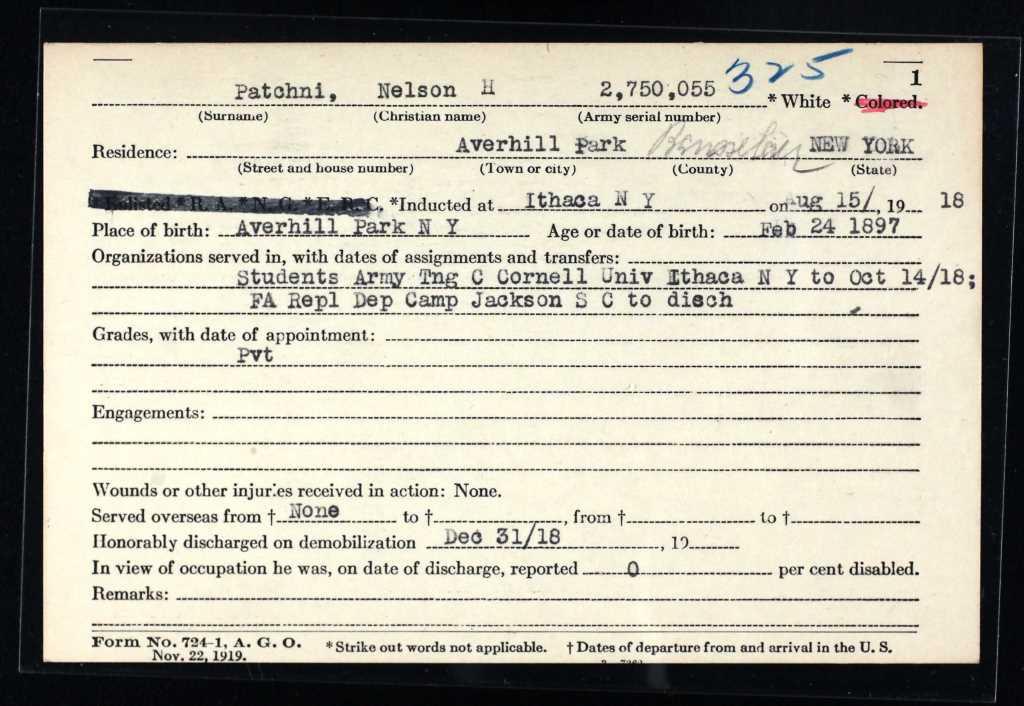 325
1
Patchni, Nelson H 2,750,055 * White * Colored.
(Surname) (Christian name) (Army serial number)
Residence: Averhill Park Rensselaer NEW YORK
(Street and house number) (Town or city) (County) (State)
Enlisted * R. A. * N. G. * E. R. C. *Inducted at Ithaca N Y on Aug 15/, 19 18
Place of birth: Averhill Park N Y Age or date of birth: Feb 24 1897
Organizations served in, with dates of assignments and transfers:
Students Army Tng C Cornell Univ Ithaca N Y to Oct 14/18;
FA Repl Dep Camp Jackson S C to disch
Grades, with date of appointment:
Pvt
Engagements:
Wounds or other injuries received in action: None.
Served overseas from † None to †, from † to †
Honorably discharged on demobilization Dec 31/18, 19
In view of occupation he was, on date of discharge, reported 0 per cent disabled.
Remarks:
Form No. 724-1, A. G. O. *Strike out words not applicable. †Dates of departure from and arrival in the U. S.
Nov. 22, 1919.